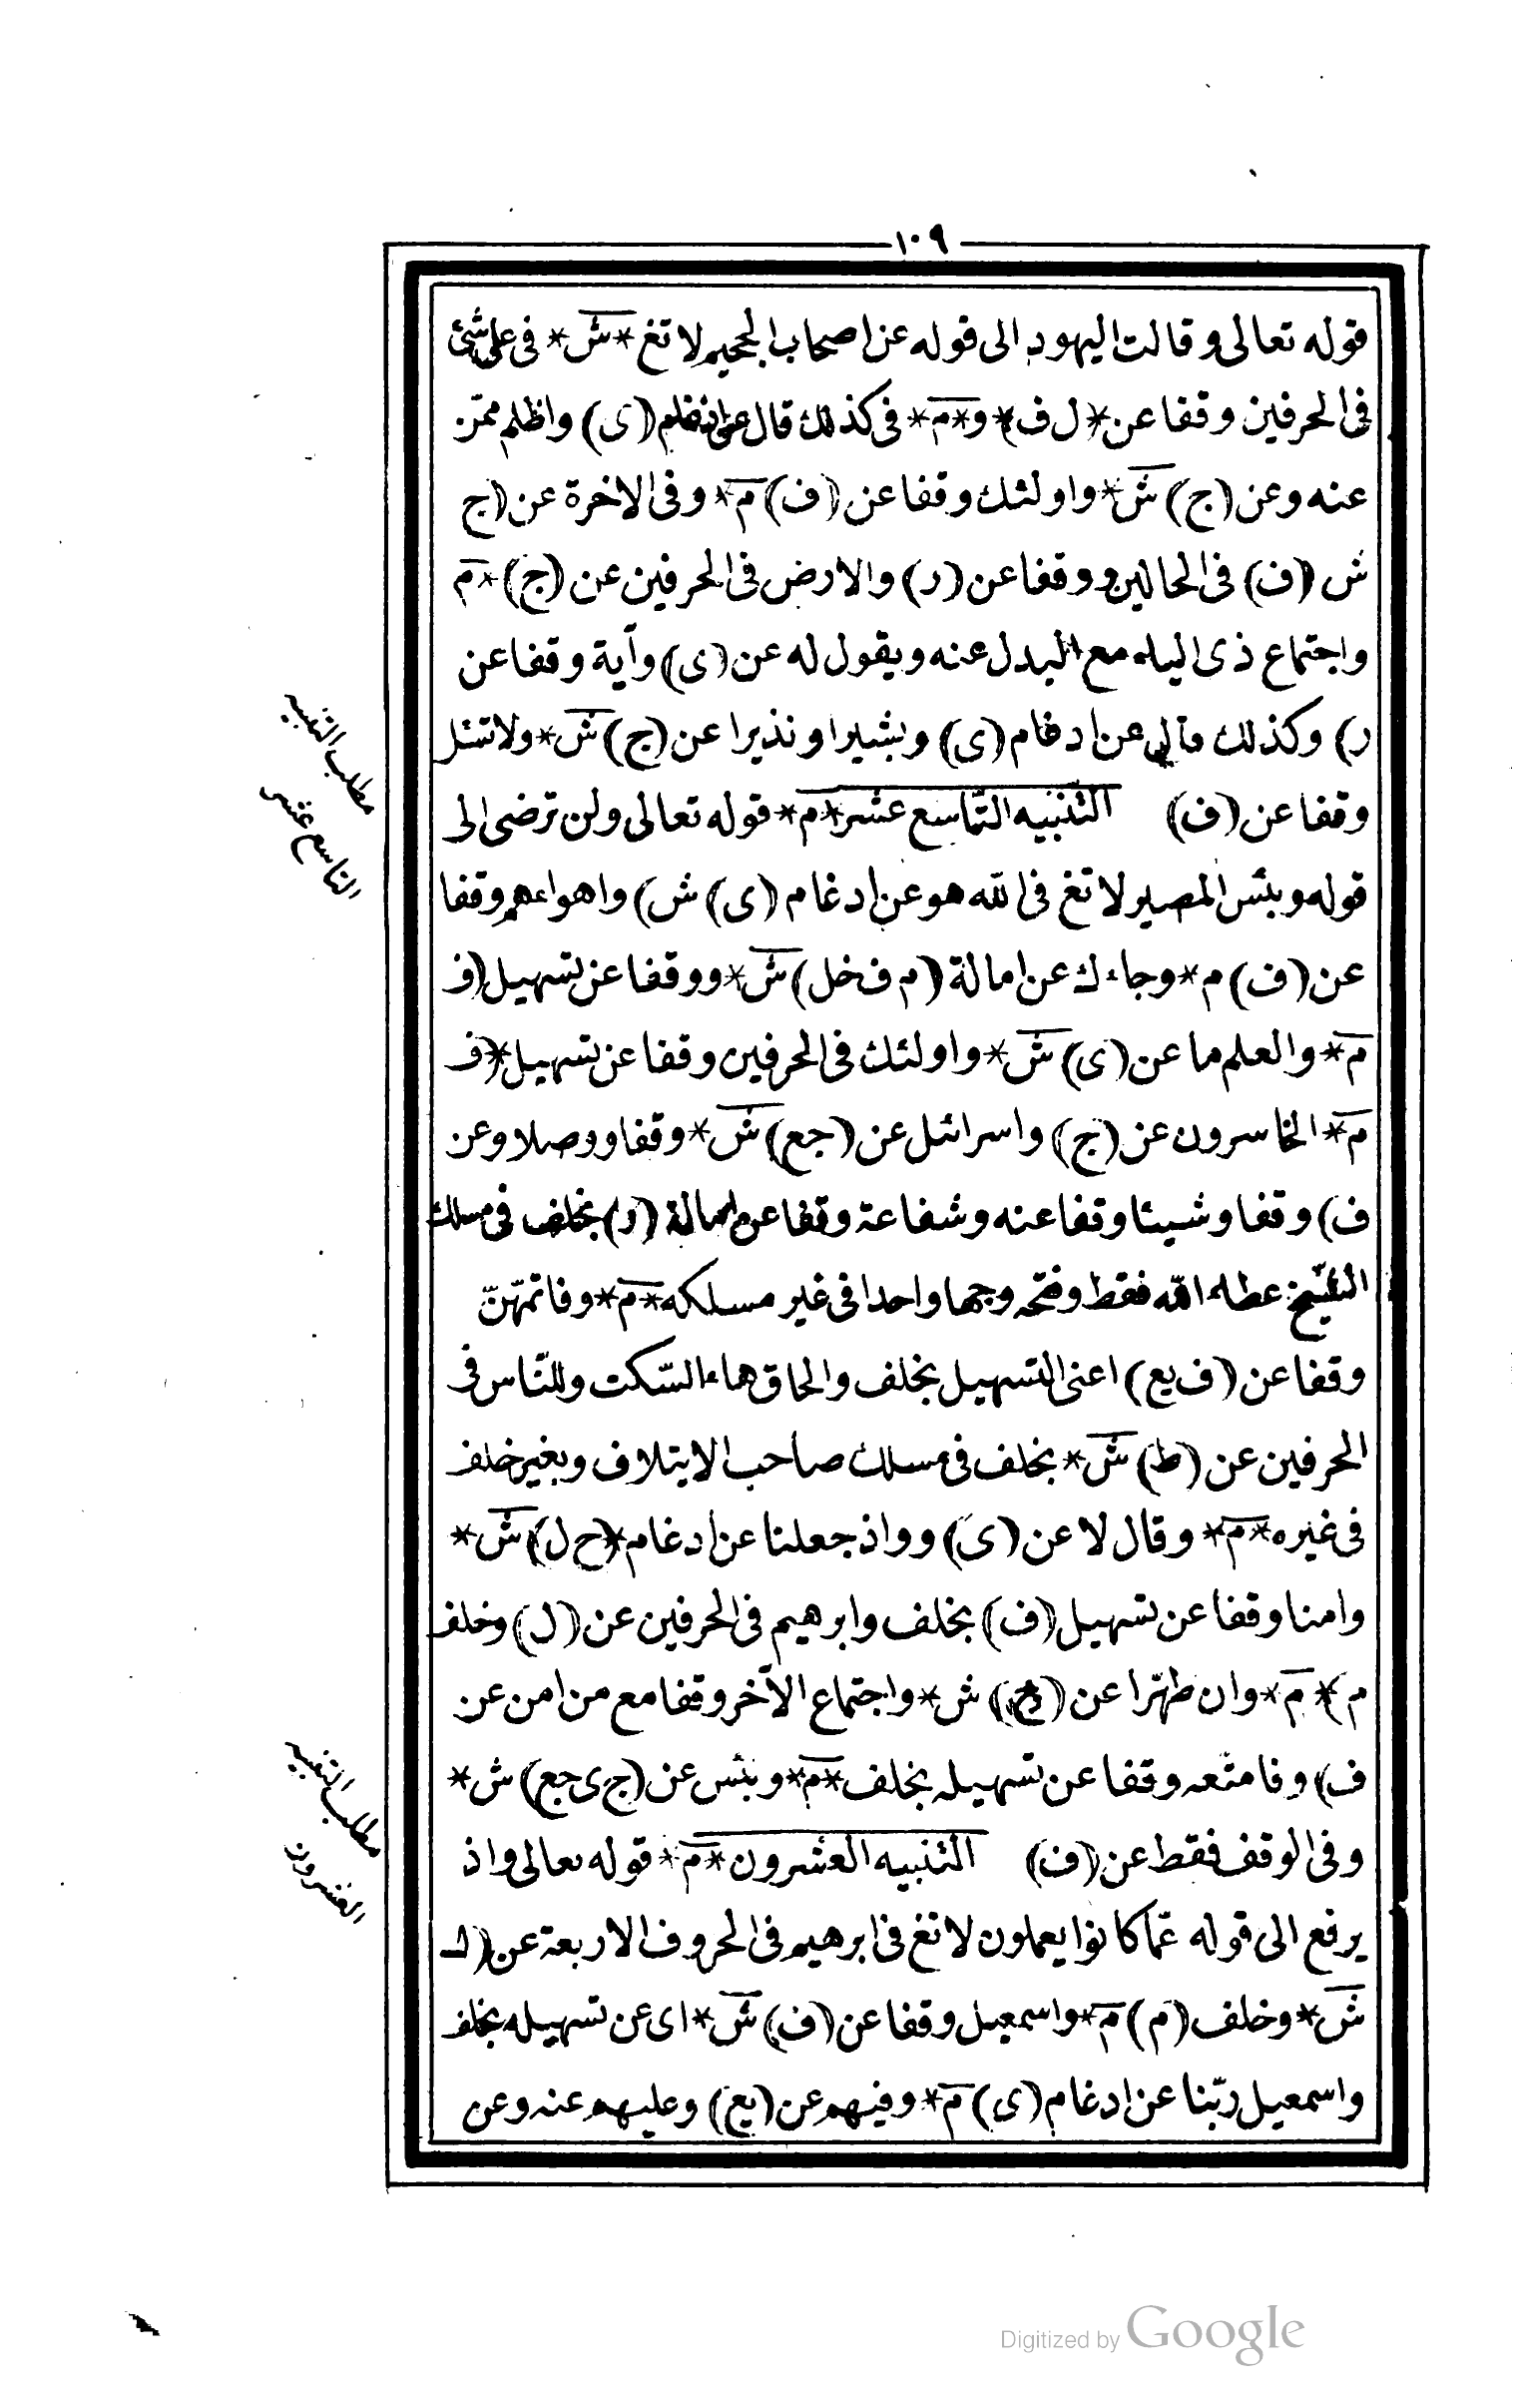 ١٠٩
قوله تعالى وقالت اليهود الى قوله عن اصحاب الجحيم لا تغ *ش* فى على شئ
فى الحرفين وقفا عن *(ل ف)* و*م* فى كذلك قال عن ادغام (ى) واظلم ممّن
عنه وعن (ج) ش* واولئك وقفا عن (ف) م* وفى الاخرة عن (ج
ش (ف) فى الحالين ووقفا عن (ر) والارض فى الحرفين عن (ج) *م
واجتماع ذى الياء مع البدل عنه ويقول له عن (ى) وآية وقفا عن
ر) وكذلك قال عن ادغام (ى) وبشيرا ونذيرا عن (ج) ش* ولا تسئل
وقفا عن (ف) التنبيه التّاسع عشر *م* قوله تعالى ولن ترضى الى
قوله وبئس المصير لا تغ فى الله هو عن ادغام (ى) ش) واهواءهم وقفا
عن (ف) م* وجاءك عن امالة (م ف خل) ش* ووقفا عن تسهيل (ف
م* والعلم ما عن (ى) ش* واولئك فى الحرفين وقفا عن تسهيل *(ف
م* الخاسرون عن (ج) واسرائيل عن (جع) ش* وقفا ووصلا وعن
ف) وقفا وشيئا وقفا عنه وشفاعة وقفا عن امالة (ر) بخلف فى مسلك
الشّيخ عطاء الله فقط وفتحه وجها واحدا فى غير مسلكه *م* وفاتمّهنّ
وقفا عن (ف يع) اعنى التسهيل بخلف والحاق هاء السّكت وللنّاس فى
الحرفين عن (ط) ش* بخلف فى مسلك صاحب الايتلاف وبغير خلف
فى غيره *م* وقال لا عن (ى) وواذ جعلنا عن ادغام *(ح ل) ش*
وامنا وقفا عن تسهيل (ف) بخلف وابرهيم فى الحرفين عن (ل) وخلف
م)* م* وان طهّرا عن (ج) ش* واجتماع الآخر وقفا مع من امن عن
ف) وفامتّعه وقفا عن تسهيله بخلف *م* وبئس عن (ج ى جع) ش*
وفى الوقف فقط عن (ف) التنبيه العشرون *م* قوله تعالى واذ
يرفع الى قوله عمّا كانوا يعملون لا تغ فى ابرهيم فى الحروف الاربعة عن (ل
ش* وخلف (م) م* واسمعيل وقفا عن (ف) ش* اى عن تسهيله بخلف
واسمعيل ربّنا عن ادغام (ى) م* وفيهم عن (يع) وعليهم عنه وعن
مطلب التنبيه
التاسع عشر
مطلب التنبيه
العشرون
Digitized by Google